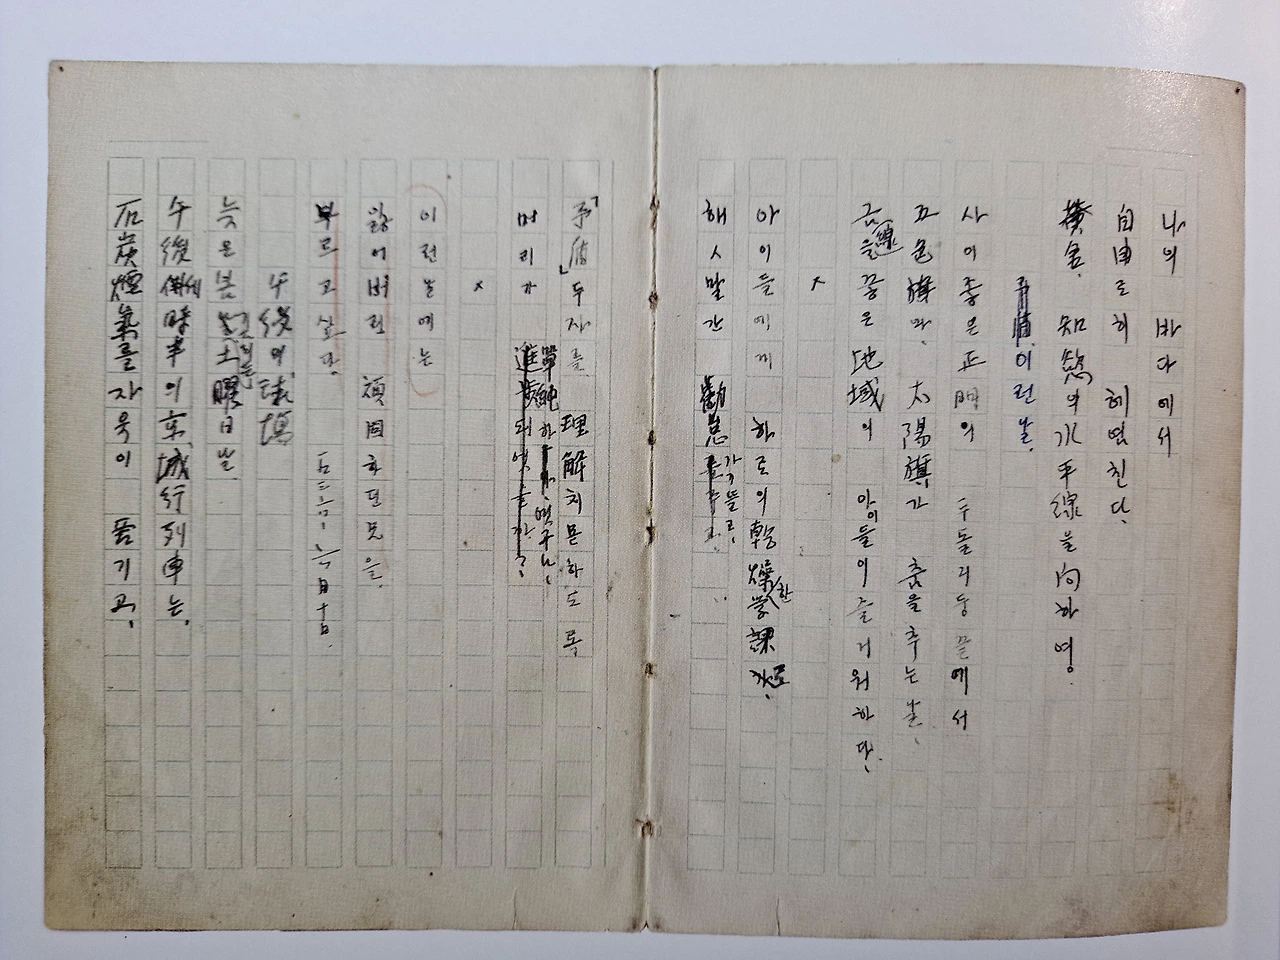 나의 바다에서
自由로히 헤염친다.
黃金, 知慾의 水平線을 向하여.
矛盾 이런날.
사이좋은 正門의 두돌기둥끝에서
五色旗와, 太陽旗가 춤을추는날,
금(線)을끟은 地域의 아이들이즐거워하다.
×
아이들에게 하로의 乾燥한 學課로,
해ㅅ말간 勸怠가기뜰고,
「矛盾」두자를 理解치몯하도록
머리가 單純하엿구나.
×
이런날에는
잃어버린 頑固하던兄을,
부르고싶다. 一九三六、六月十日.
午後의 球場
늦은봄 기다리든 土曜日날.
午後 세時半의 京城行列車는,
石炭煙氣를 자욱이 품기고,